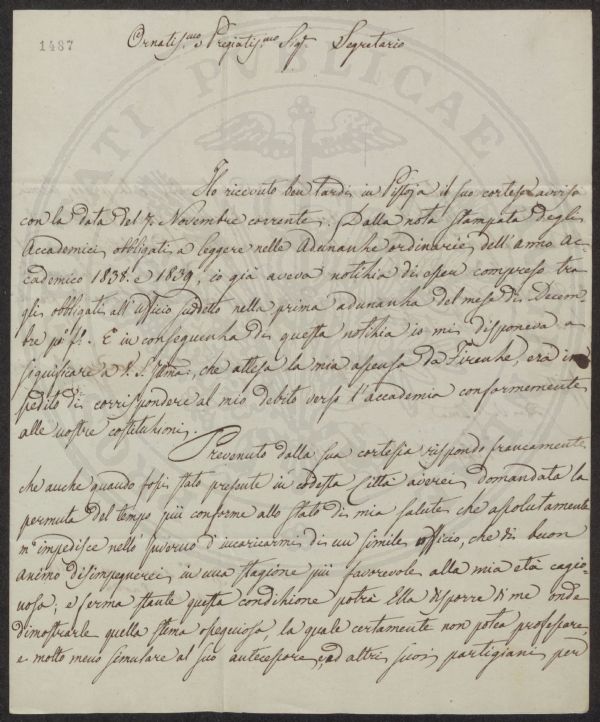 1487
Ornatis.mo Pregiatis.mo Sig.r Segretario
ATI PUBLICAE
Ho ricevuto ben tardi in Pistoja il suo cortese avviso
con la data del 7. Novembre corrente. Dalla nota stampata degli
Accademici obbligati a leggere nelle Adunanze ordinarie dell'anno Ac-
cademico 1838. e 1839, io già aveva notizia di esser compreso tra
gli obbligati all'Ufficio suddetto nella prima adunanza del mese di Decem-
bre p.o f.o. E in conseguenza di questa notizia io mi disponeva a
significare a V. S. Illma:, che attesa la mia assenza da Firenze, era im-
pedito di corrispondere al mio debito verso l'accademia conformemente
alle nostre costituzioni.
Prevenuto dalla sua cortesia rispondo francamente
che anche quando fossi stato presente in codesta Città averei domandata la
permuta del tempo più conforme allo stato di mia salute che assolutamente
m'impedisce nell'inverno d'incaricarmi di un simile ufficio, che di buon
animo disimpegnerei in una stagione più favorevole alla mia età cagio-
nosa; e ferma stante questa condizione potrà Ella disporre di me onde
dimostrarle quella stima ossequiosa, la quale certamente non potea professare,
e molto meno simulare al suo antecessore, ed altri suoi partigiani per